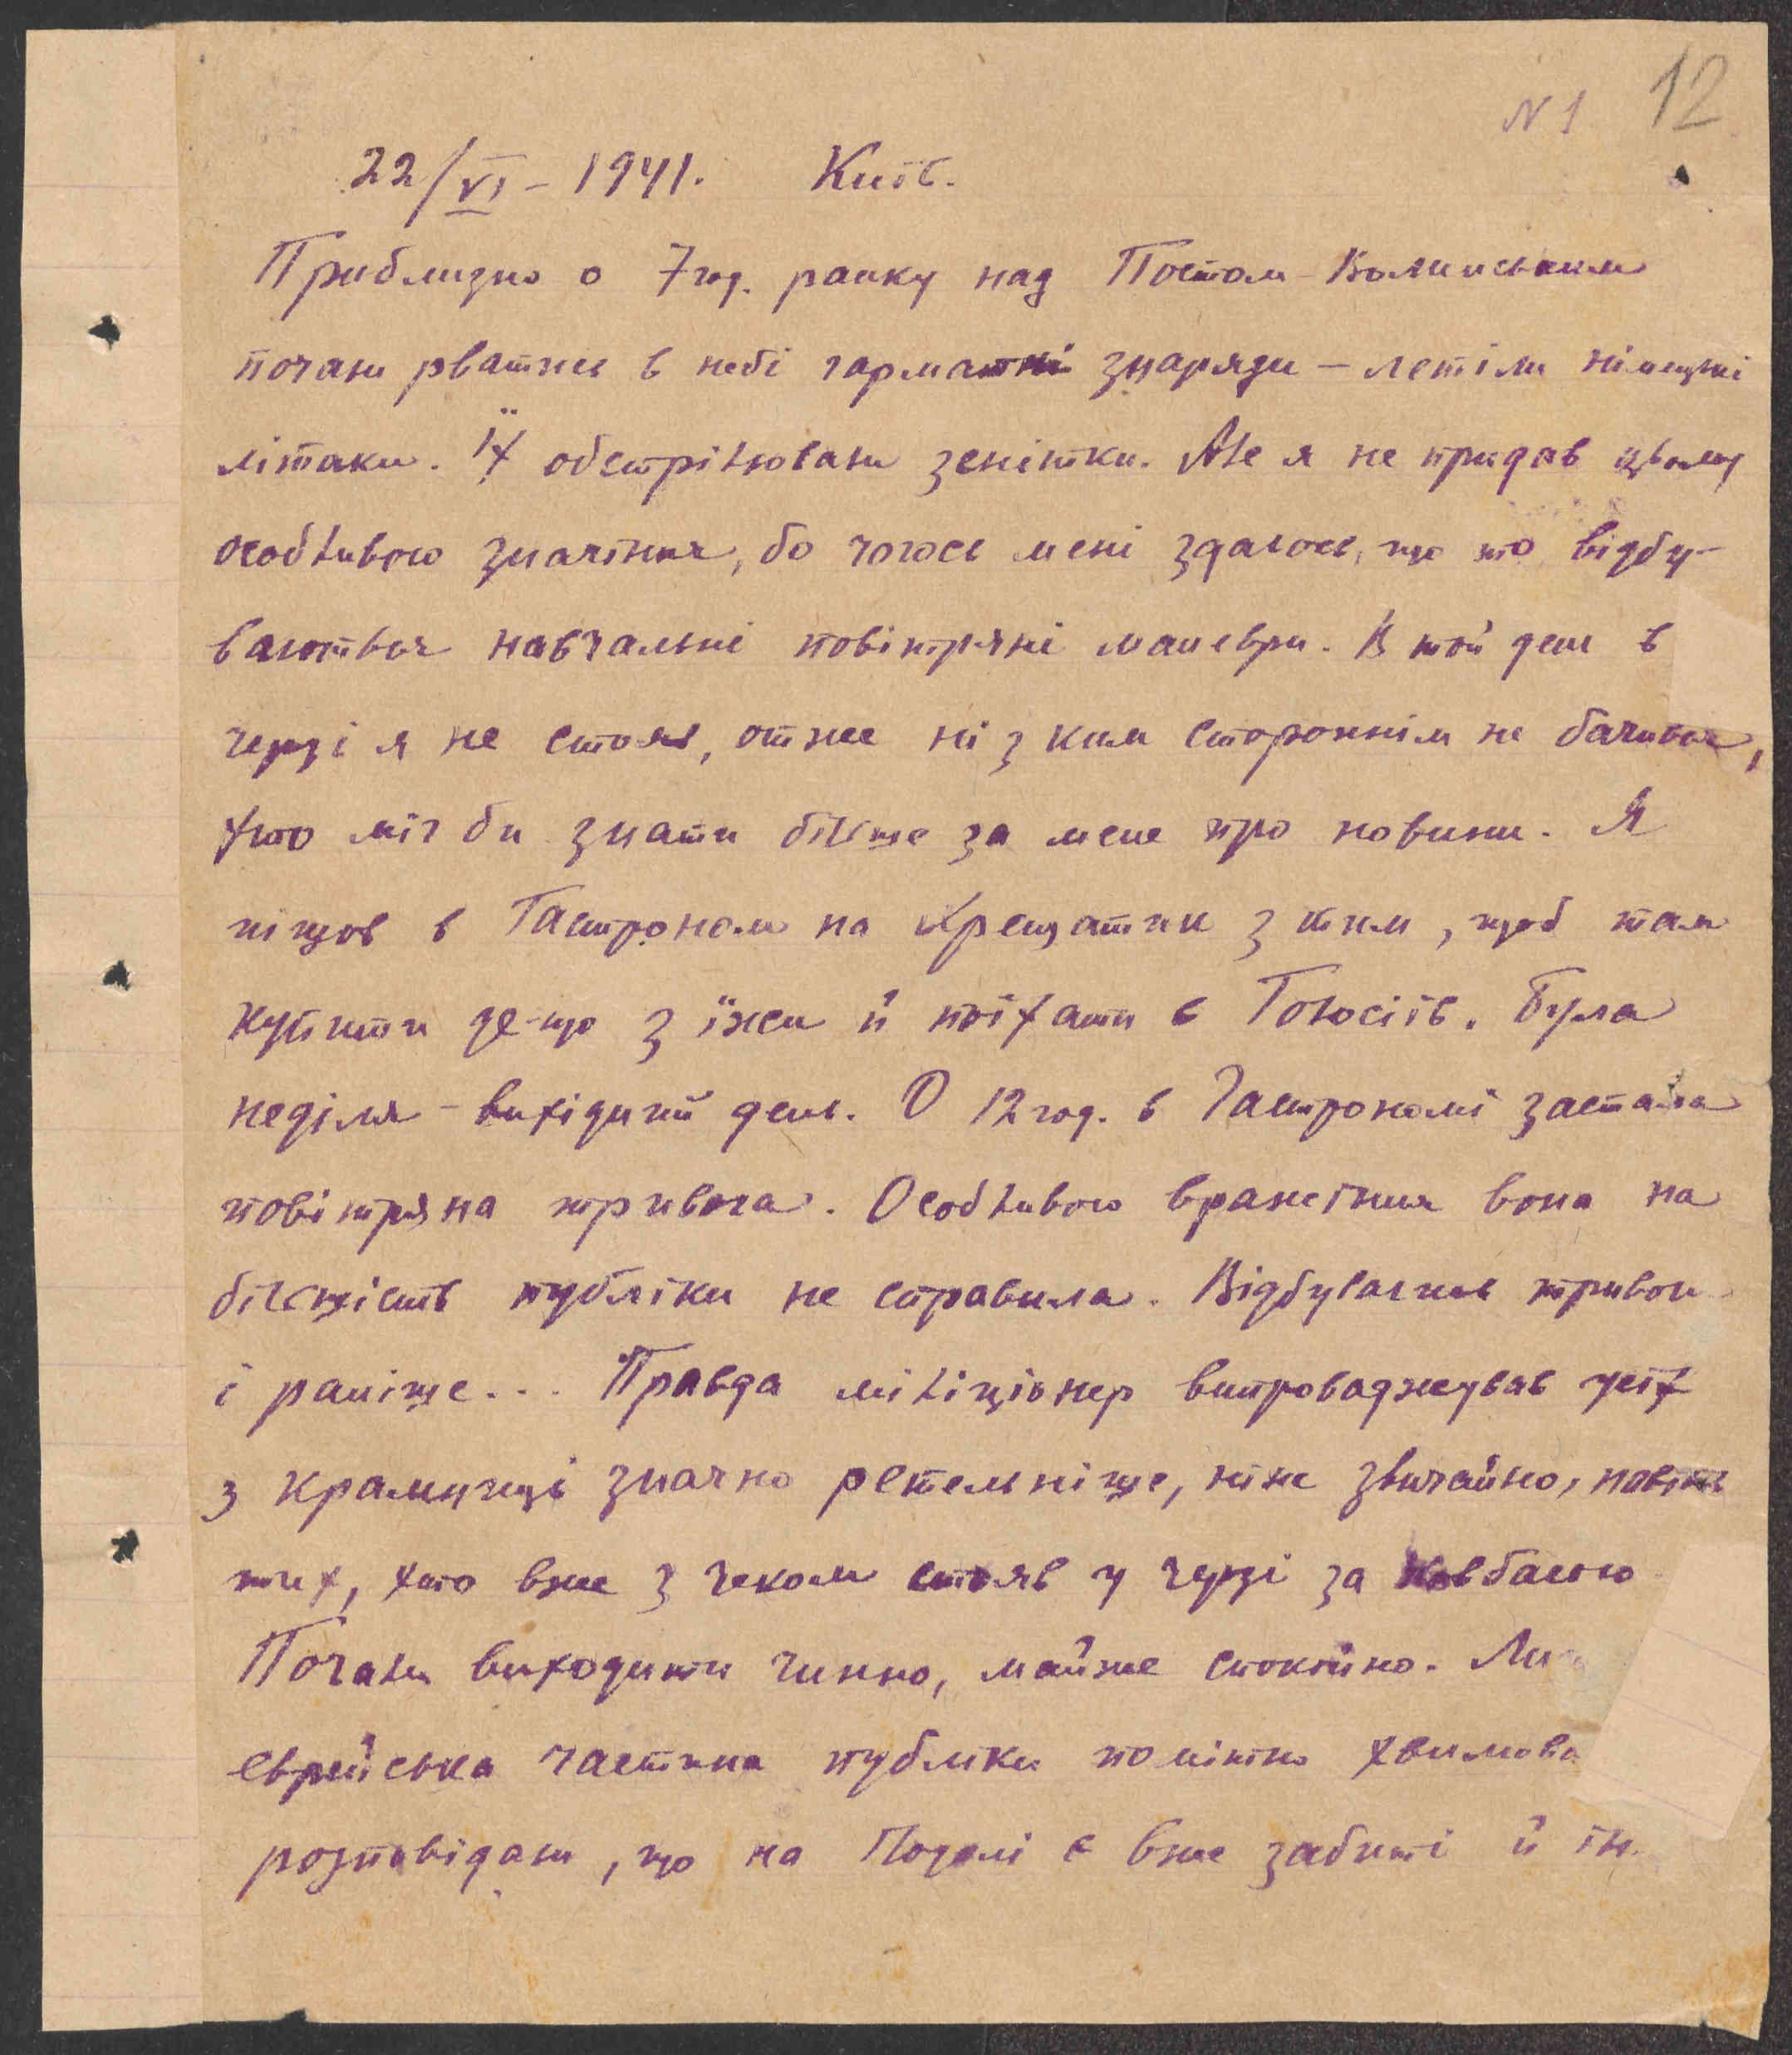 N 1 12
22/VI – 1941. Київ.
Приблизно о 7 год. ранку над Постом-Волинським
почали рватись в небі гарматні знаряди – летіли німецькі
літаки. Їх обстрілювали зенітки. Але я не придав цьому
особливого значіння, бо чогось мені здалось, що то відбу-
ваються навчальні повітряні маневри. В той день в
черзі я не стояв, отже ні з ким стороннім не бачився,
хто міг би знати більше за мене про новини. Я
пішов в Гастроном на Хрещатик з тим, щоб там
купити де-що з їжи й поїхати в Голосіїв. Була
неділя – вихідний день. О 12 год. в Гастрономі застала
повітряна тривога. Особливого вражіння вона на
більшість публіки не справила. Відбувались тривоги
і раніше... Правда міліціонер випроваджував усіх
з крамниці значно ретельніще, ніж звичайно, навіть
тих, хто вже з чеком стояв у черзі за ковбасою
Почали виходити чинно, майже спокійно. Ли
єврейська частина публіки помітно хвилюва
розповідали, що на Подолі є вже забиті й ін.